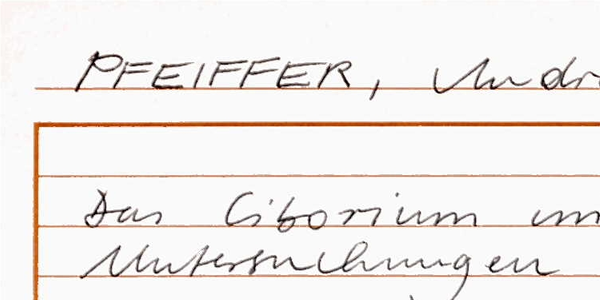 PFEIFFER, Andr
Das Ciborium im
Untersuchungen